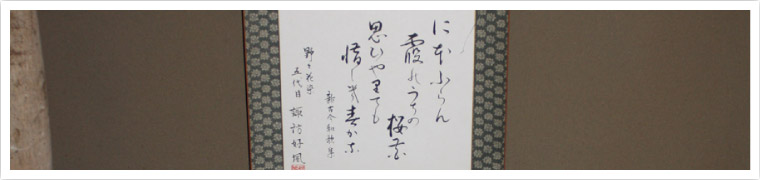 にほふらん
霞のうちの
桜花
思ひやりても
惜しき春かな
新古今和歌集
五代目 諏訪好風